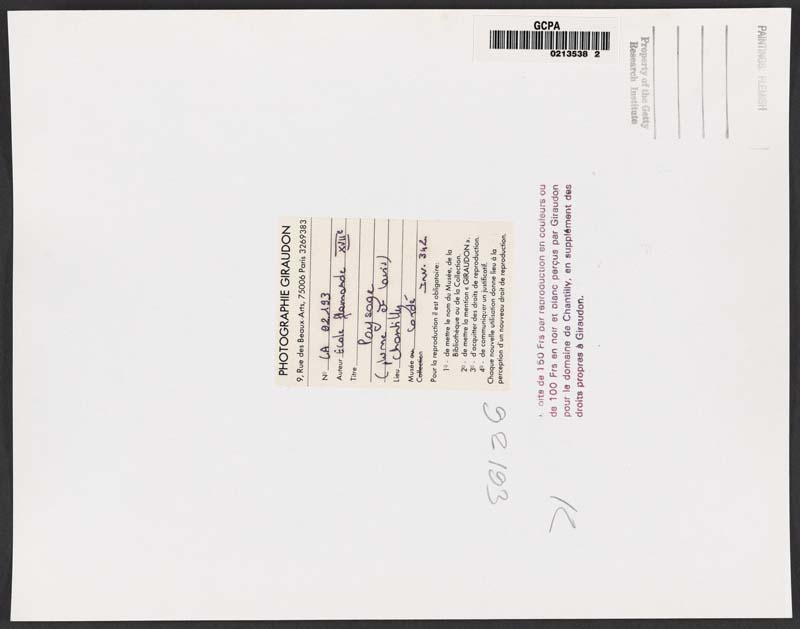 GCPA
0213538 2
Property of the Getty
Research Institute
PAINTINGS: FLEMISH
PHOTOGRAPHIE GIRAUDON
9, Rue des Beaux-Arts, 75006 Paris 3269383
N° LA 92193
Auteur École flamande XVIIe
Titre
Paysage
(plume et lavis)
Lieu Chantilly
Musée ou Condé
Collection Inv. 342
Pour la reproduction il est obligatoire:
1° - de mettre le nom du Musée, de la
Bibliothèque ou de la Collection.
2° - de mettre la mention « GIRAUDON ».
3° - d'acquitter des droits de reproduction.
4° - de communiquer un justificatif.
Chaque nouvelle utilisation donne lieu à la
perception d'un nouveau droit de reproduction.
de 150 Frs par reproduction en couleurs ou
de 100 Frs en noir et blanc perçus par Giraudon
pour le domaine de Chantilly, en supplément des
droits propres à Giraudon.
92193
K